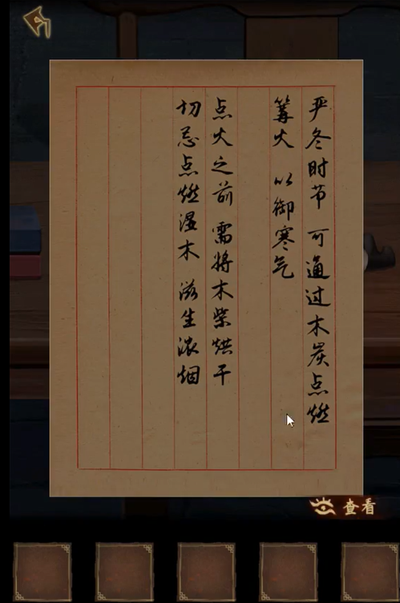 严冬时节 可通过木炭点燃
篝火 以御寒气
点火之前 需将木柴烘干
切忌点燃湿木 滋生浓烟
查看